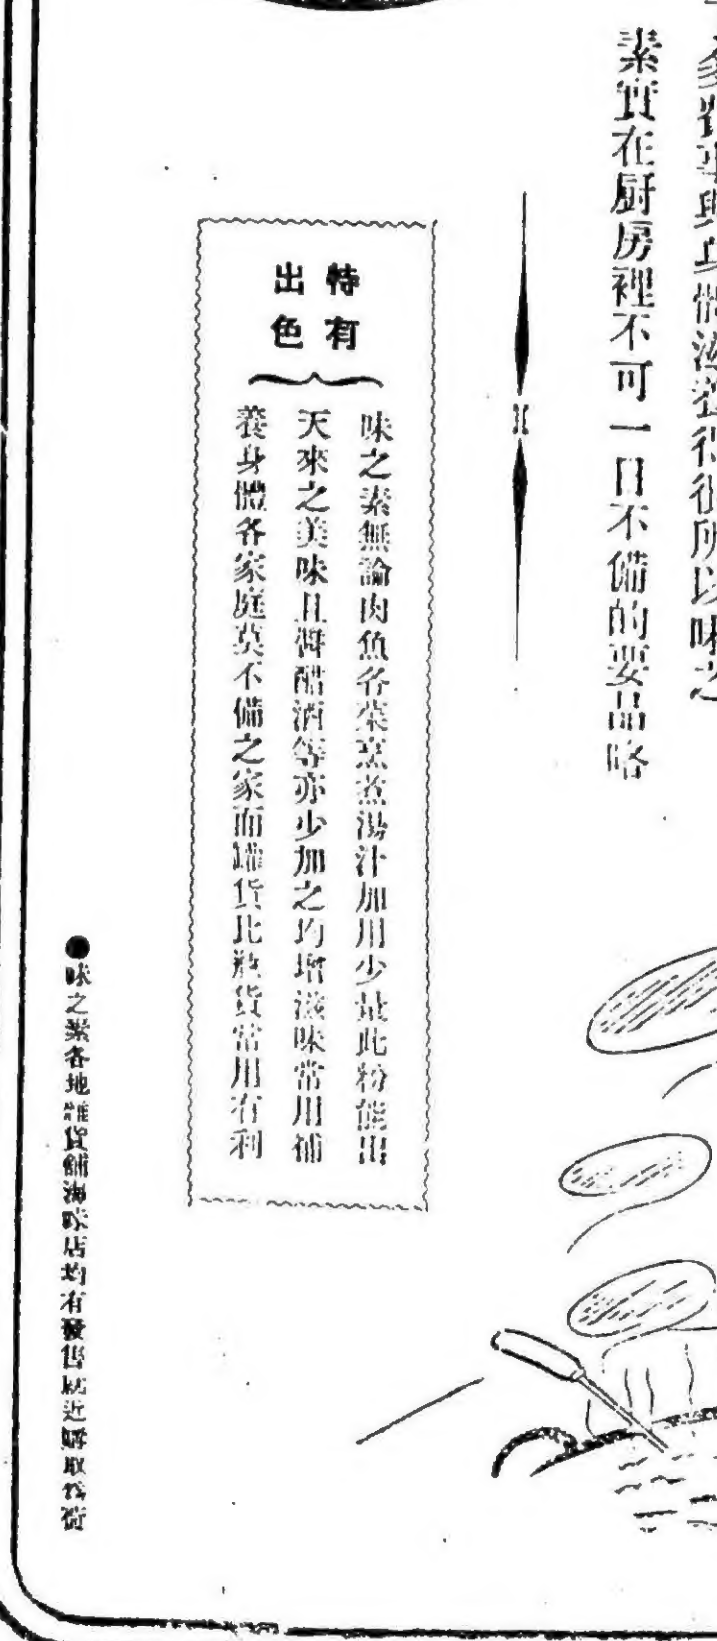 與身體滋養得很所以味之
素實在厨房裡不可一日不備的要品略
特有
出色
味之素無論肉魚各菜烹煮湯汁加用少量此粉能出
天來之美味且醬醋酒等亦少加之均增滋味常用補
養身體各家庭莫不備之家而罐貨比瓶貨常用有利
●味之素各地雜貨舖海味店均有發售就近購取為荷